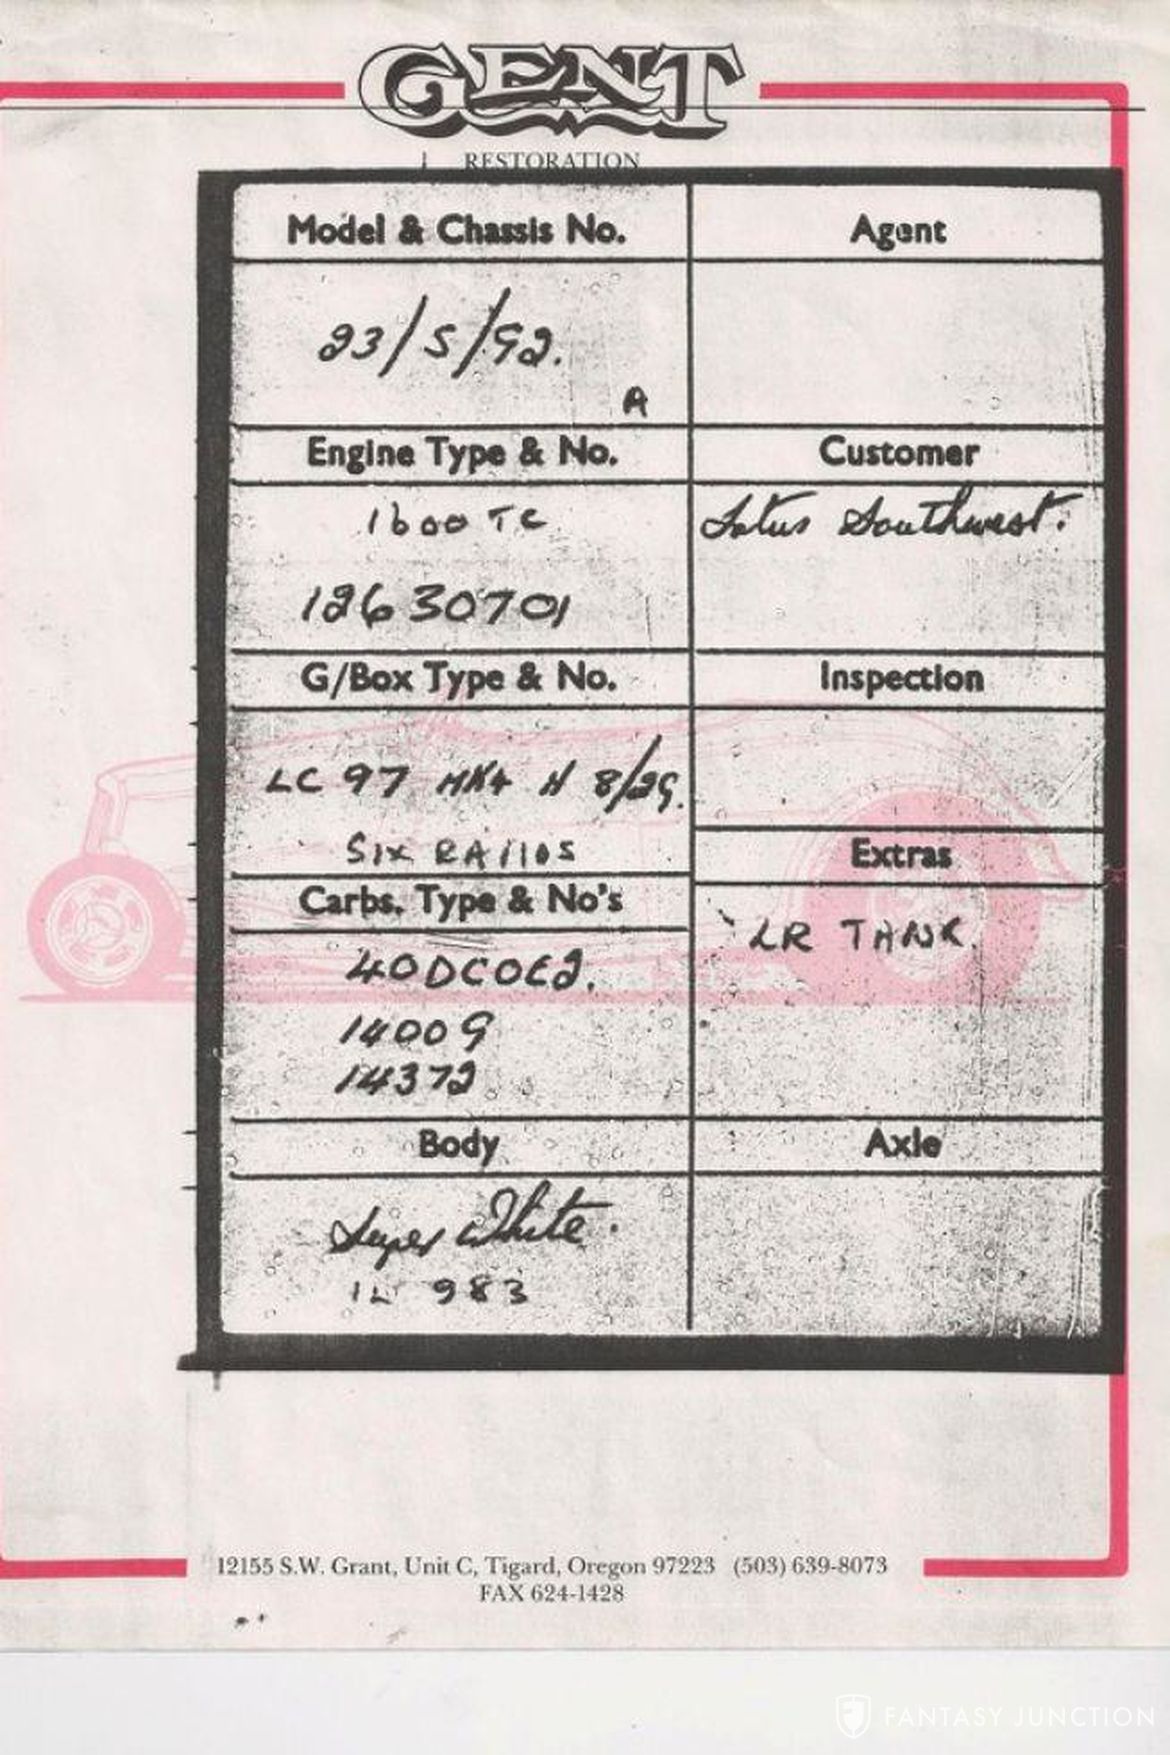 GENT
RESTORATION
Model & Chassis No.
Agent
23/S/92.
A
Engine Type & No.
Customer
1600 TC
Lotus Southwest.
12630701
G/Box Type & No.
Inspection
LC 97 MK4 H 8/29.
SIX RATIOS
Extras
Carbs. Type & No's
LR TANK.
40DCOE2.
14009
14372
Body
Axle
Super White.
IL 983
12155 S.W. Grant, Unit C, Tigard, Oregon 97223 (503) 639-8073
FAX 624-1428
FANTASY JUNCTION